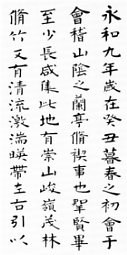 永和九年歲在癸丑暮春之初會于
會稽山陰之蘭亭脩禊事也羣賢畢
至少長咸集此地有崇山峻嶺茂林
脩竹又有清流激湍暎帶左右引以